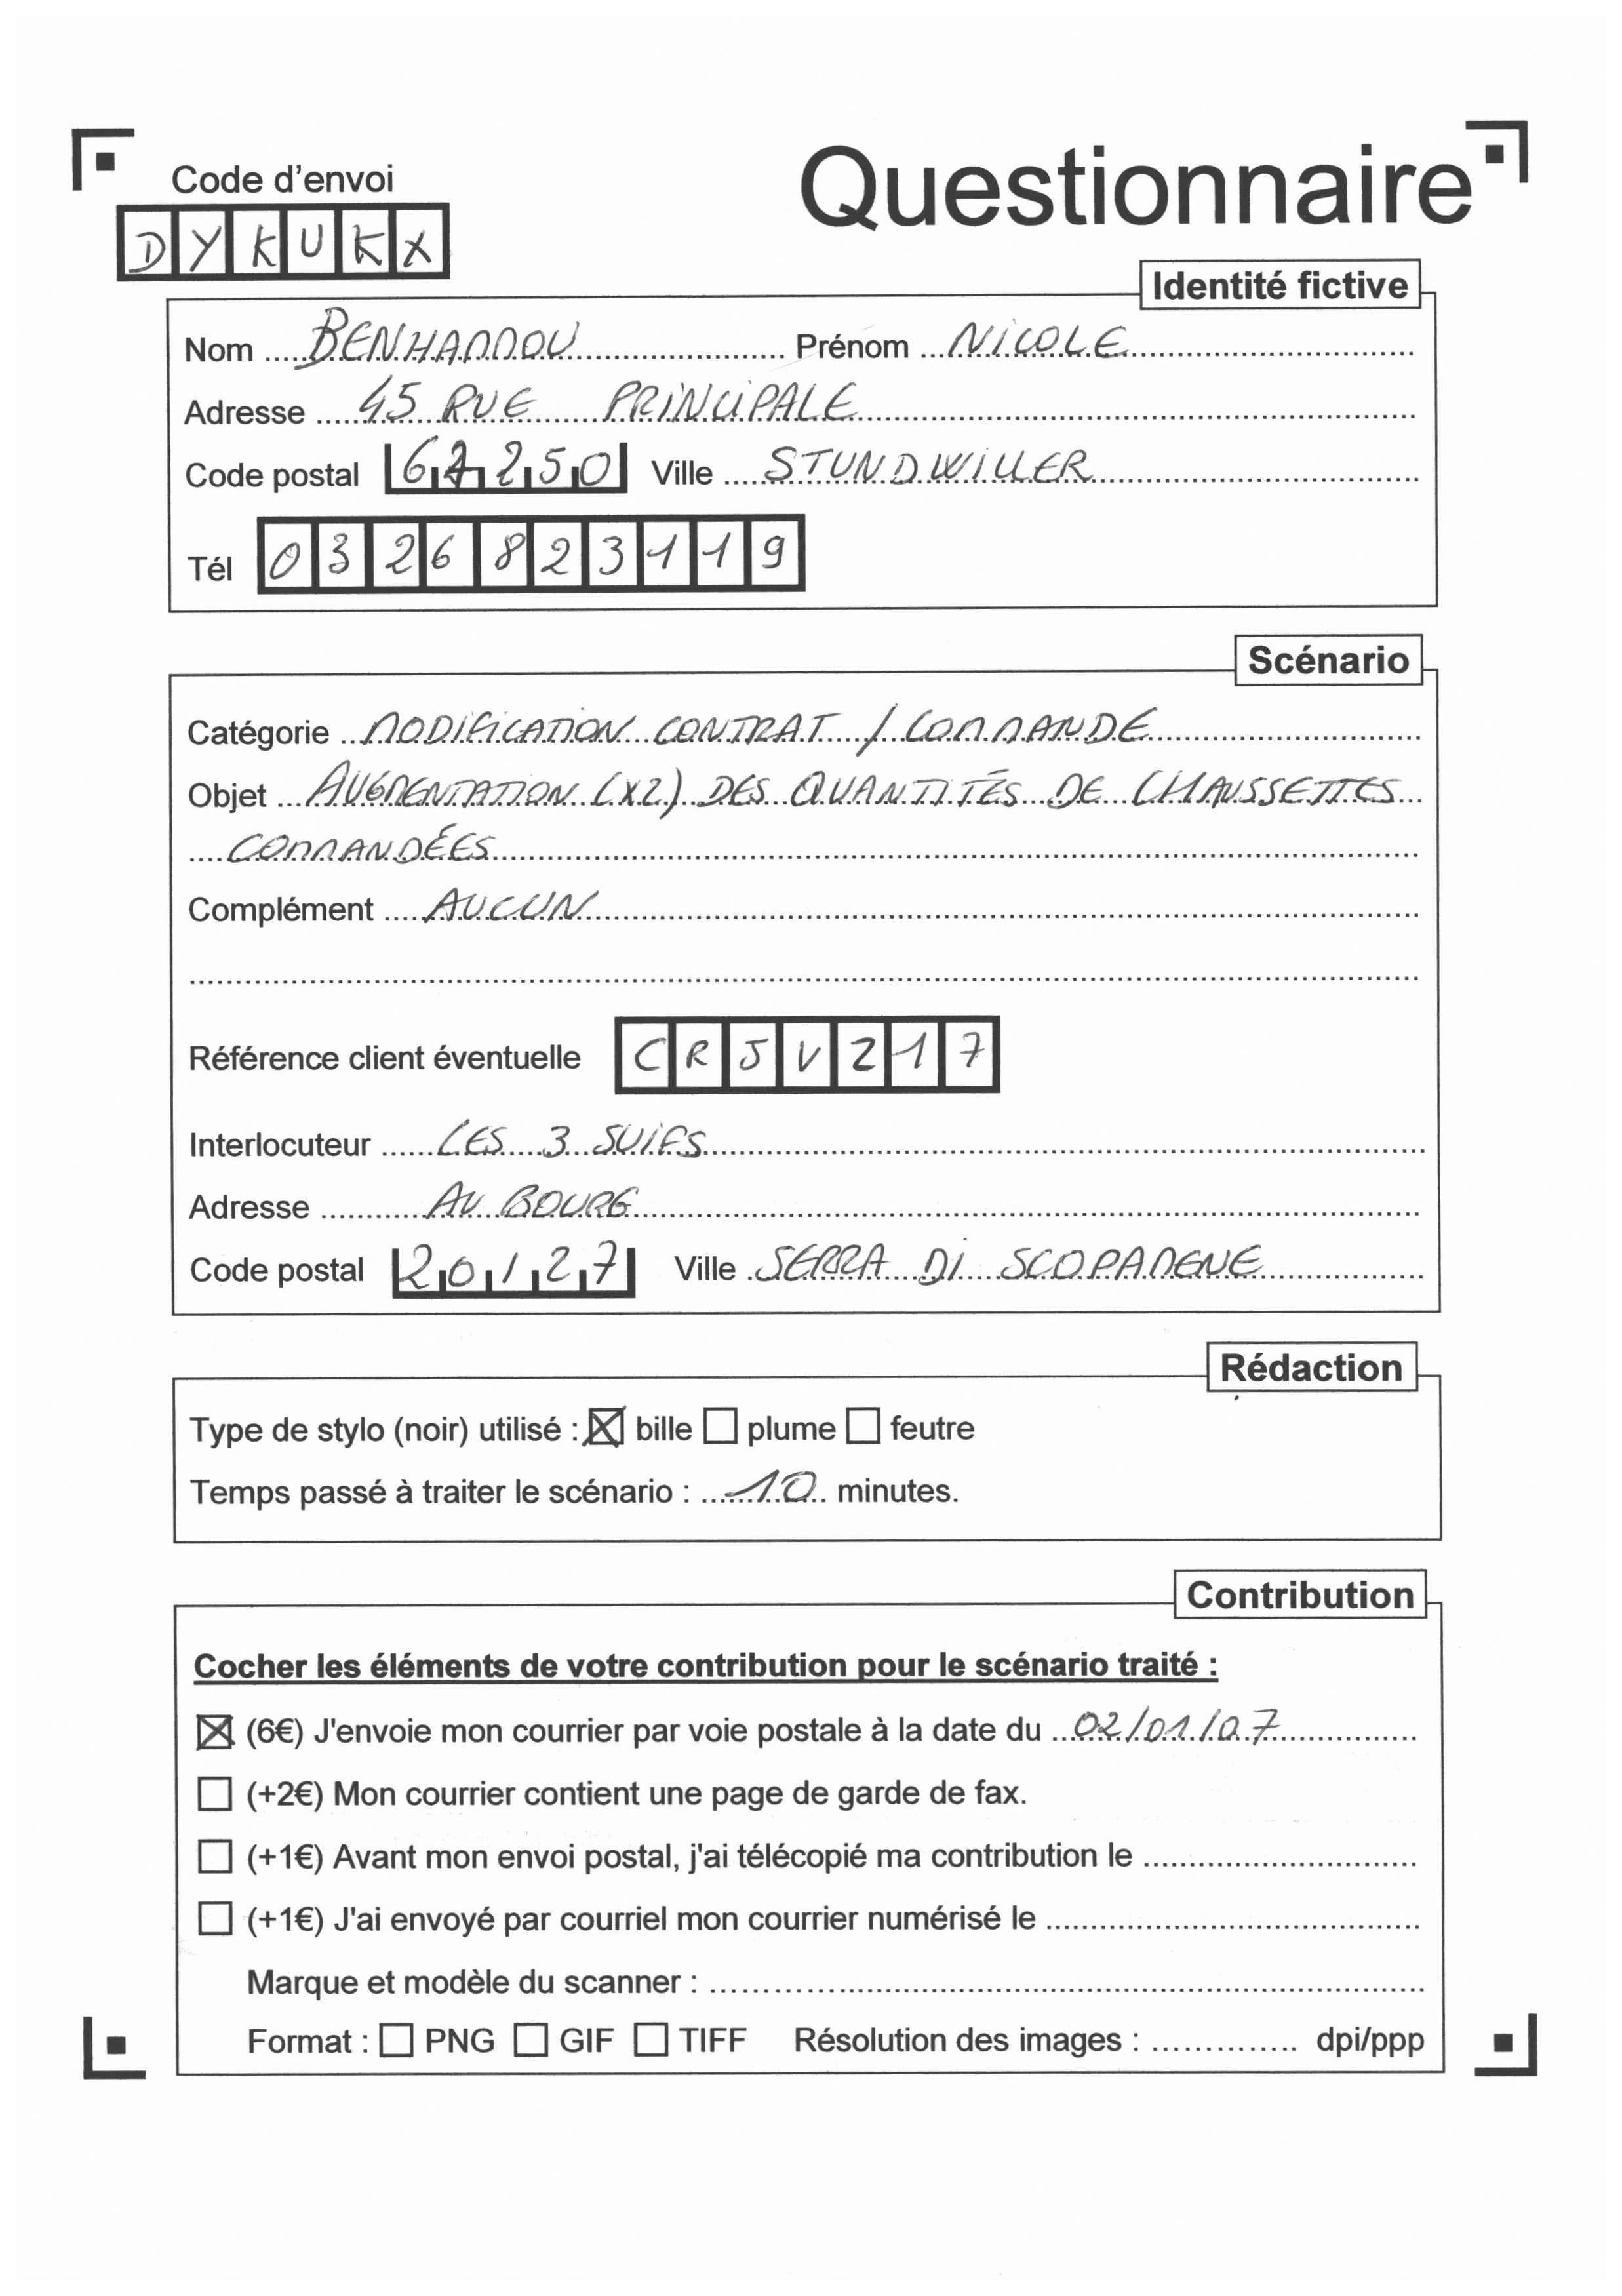 Code d'envoi
DYKUKX
Questionnaire
Identité fictive
Nom BENHAMMOU Prénom NICOLE
Adresse 45 RUE PRINCIPALE
Code postal 67250 Ville STUNDWILLER
Tél 0326823119
Scénario
Catégorie MODIFICATION CONTRAT / COMMANDE
Objet AUGMENTATION (X2) DES QUANTITÉS DE CHAUSSETTES
COMMANDÉES
Complément AUCUN
Référence client éventuelle CRJV217
Interlocuteur LES 3 SUIFS
Adresse AU BOURG
Code postal 20127 Ville SERRA DI SCOPAMENE
Rédaction
Type de stylo (noir) utilisé : ☒ bille ☐ plume ☐ feutre
Temps passé à traiter le scénario : 10 minutes.
Contribution
Cocher les éléments de votre contribution pour le scénario traité :
☒ (6€) J'envoie mon courrier par voie postale à la date du 02/01/07
☐ (+2€) Mon courrier contient une page de garde de fax.
☐ (+1€) Avant mon envoi postal, j'ai télécopié ma contribution le
☐ (+1€) J'ai envoyé par courriel mon courrier numérisé le
Marque et modèle du scanner :
Format : ☐ PNG ☐ GIF ☐ TIFF Résolution des images : dpi/ppp